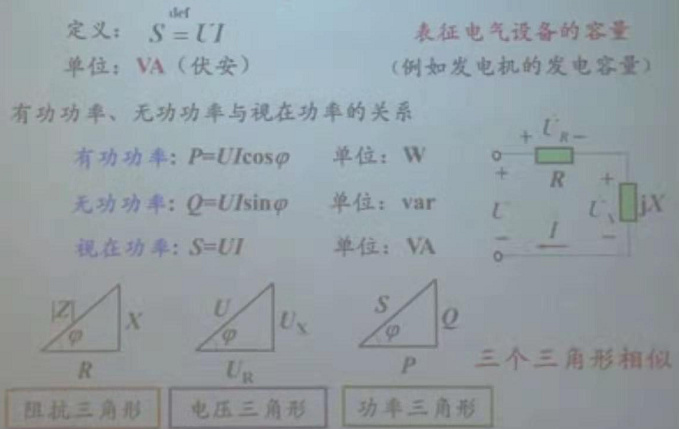 定义： S def= UI 表征电气设备的容量
单位：VA（伏安） （例如发电机的发电容量）
有功功率、无功功率与视在功率的关系
有功功率：P=UIcosφ 单位：W
无功功率：Q=UIsinφ 单位：var
视在功率：S=UI 单位：VA
+ U̇R −
R
+ U̇ −
+ U̇X −
jX
İ
|Z| φ X R
U φ UX UR
S φ Q P
三个三角形相似
阻抗三角形 电压三角形 功率三角形